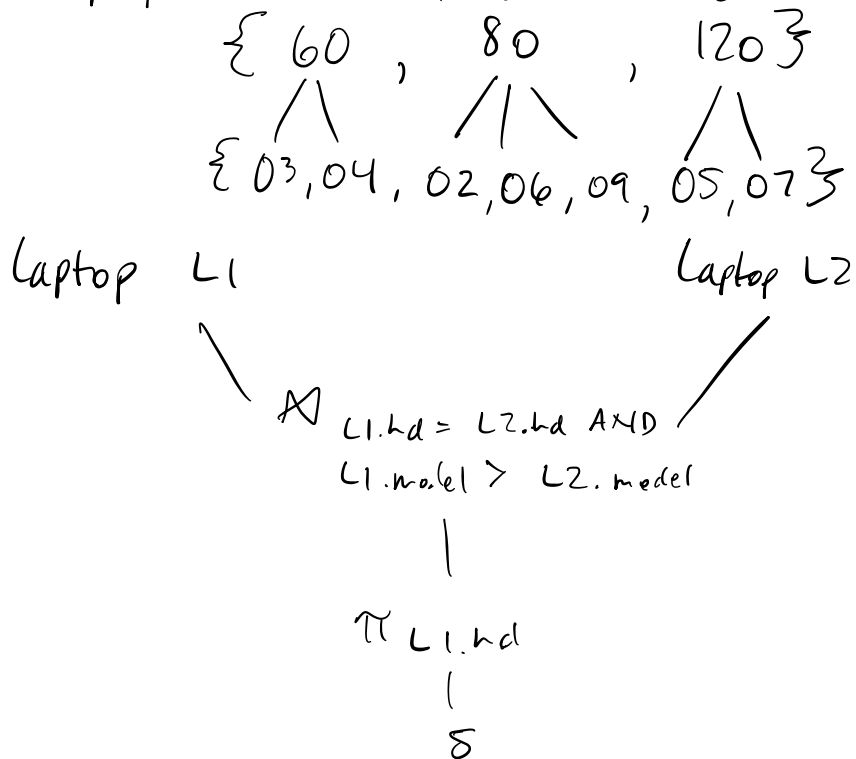 { 60 , 80 , 120 }
{ 03, 04, 02, 06, 09, 05, 07 }
Laptop L1 Laptop L2
⋈ L1.hd = L2.hd AND
L1.model > L2.model
π L1.hd
δ